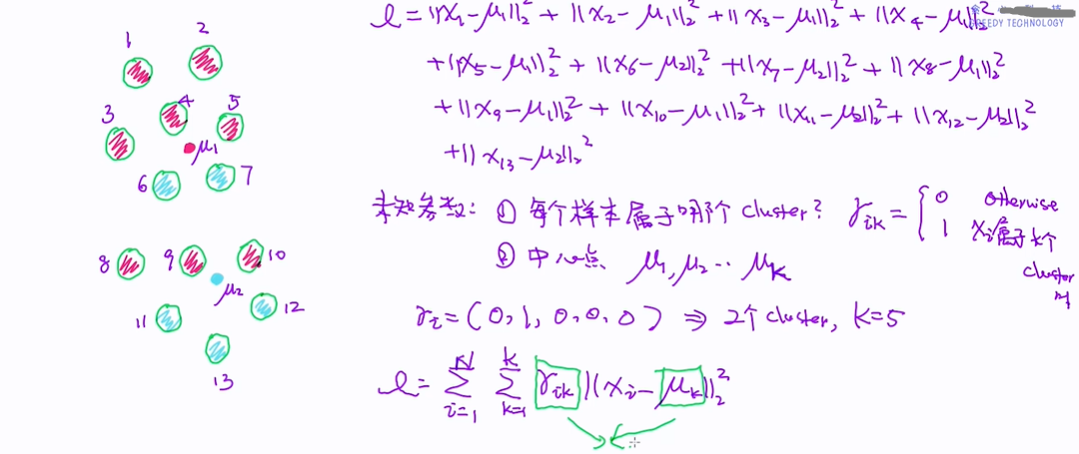 1
2
3
4
5
μ₁
6
7
8
9
10
μ₂
11
12
13
GREEDY TECHNOLOGY
ℓ = ||x₁-μ₁||₂² + ||x₂-μ₁||₂² + || x₃-μ₁||₂² + ||x₄-μ₁||₂²
+||x₅-μ₁||₂² + ||x₆-μ₂||₂² +||x₇-μ₂||₂² + ||x₈-μ₁||₂²
+||x₉-μ₁||₂² + ||x₁₀-μ₁||₂² + ||x₁₁-μ₂||₂² + ||x₁₂-μ₂||₂²
+||x₁₃-μ₂||₂²
未知参数: ① 每个样本属于哪个 cluster? γᵢₖ = { 0 otherwise
1 xᵢ属于k个
cluster
时
② 中心点 μ₁, μ₂ ·· μₖ
γᵢ = (0, 1, 0, 0, 0) ⇒ 2个cluster, k=5
ℓ = Σᵢ₌₁ᴺ Σₖ₌₁ᴷ γᵢₖ ||xᵢ - μₖ||₂²